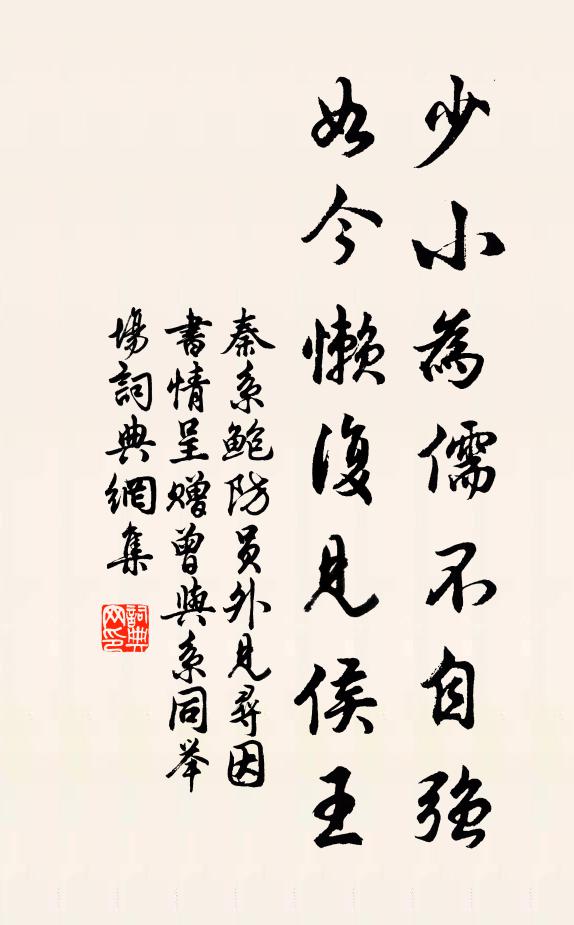 少小為儒不自強
如今懶復見侯王
秦系鮑防員外見尋因
書情呈贈曾與系同举
場詞典網集
詞典網印